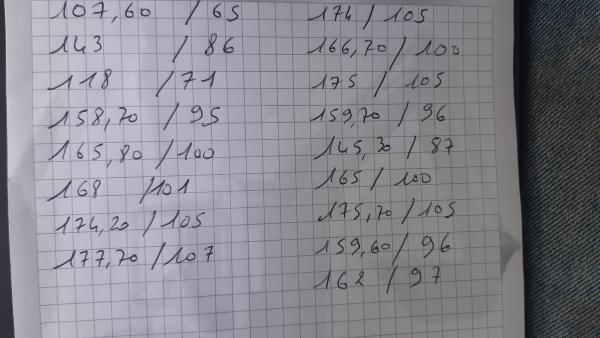 107,60 / 65
143 / 86
118 / 71
158,70 / 95
165,80 / 100
168 / 101
174,20 / 105
177,70 / 107
174 / 105
166,70 / 100
175 / 105
159,70 / 96
145,30 / 87
165 / 100
175,70 / 105
159,60 / 96
162 / 97